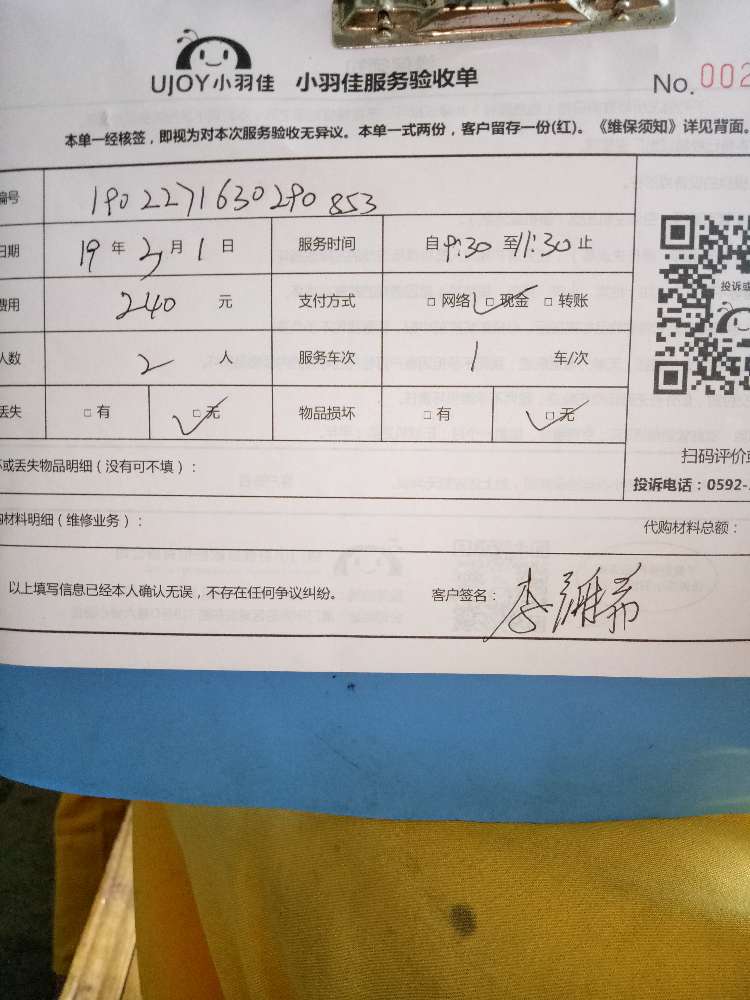 UJOY小羽佳 小羽佳服务验收单 No. 002
本单一经核签，即视为对本次服务验收无异议。本单一式两份，客户留存一份(红)。《维保须知》详见背面。
编号 1902271630290853
日期 19 年 3 月 1 日 服务时间 自9:30至11:30止
费用 240 元 支付方式 □ 网络 □ 现金 □ 转账
人数 2 人 服务车次 1 车/次
丢失 □ 有 □ 无 物品损坏 □ 有 □ 无
投诉或
扫码评价或
坏或丢失物品明细（没有可不填）：
投诉电话：0592-
购材料明细（维修业务）： 代购材料总额：
以上填写信息已经本人确认无误，不存在任何争议纠纷。 客户签名：李雅希